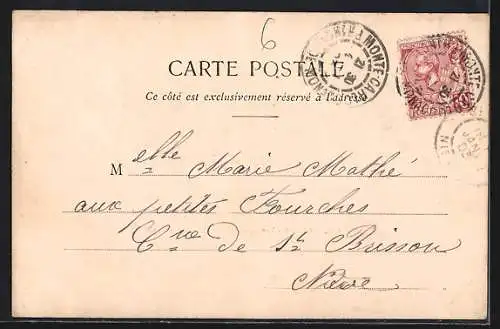 6
CARTE POSTALE
Ce côté est exclusivement réservé à l'adresse
Melle Marie Mathé
aux petites Fourches
Cne de St Brisson
Nièvre
MONTE-CARLO